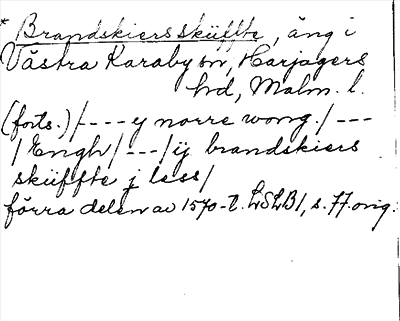 * Brandskiersskiiffte, äng i
Västra Karaby sn, Harjagers
hd, Malm. l.
(forts.) /---- ij norre wong. / ---
/ Engh / --- / ij brandskiers
skiiffte j less /
förra delen av 1570-t. LSLB1, s. 77 orig.